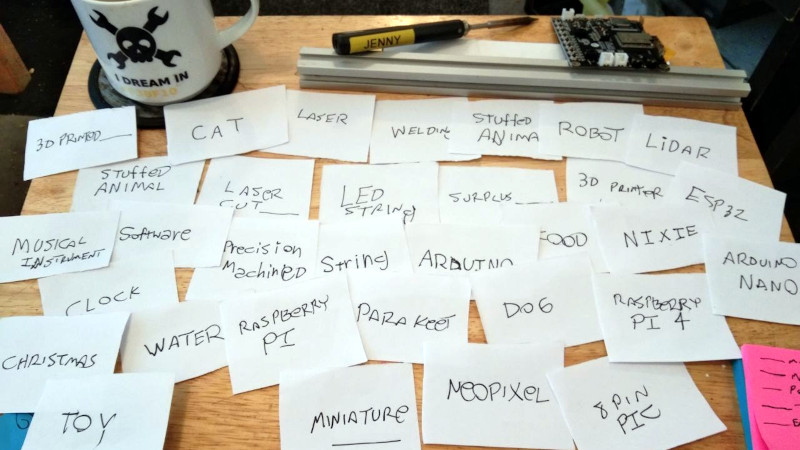 I DREAM IN
JENNY
3D PRINTED___
CAT
LASER
WELDING
STUFFED
ANIMA
ROBOT
LiDAR
STUFFED
ANIMAL
LASER
CUT___
LED
STRING
SURPLUS___
3D PRINTER
ESP32
MUSICAL
INSTRUMENT
Software
Precision
Machined
String
ARDUINO
FOOD
NIXIE
ARDUINO
NANO
CLOCK
WATER
RASPBERRY
PI
PARAKEET
DOG
RASPBERRY
PI 4
CHRISTMAS
TOY
MINIATURE
___
NEOPIXEL
8 PIN
PIC